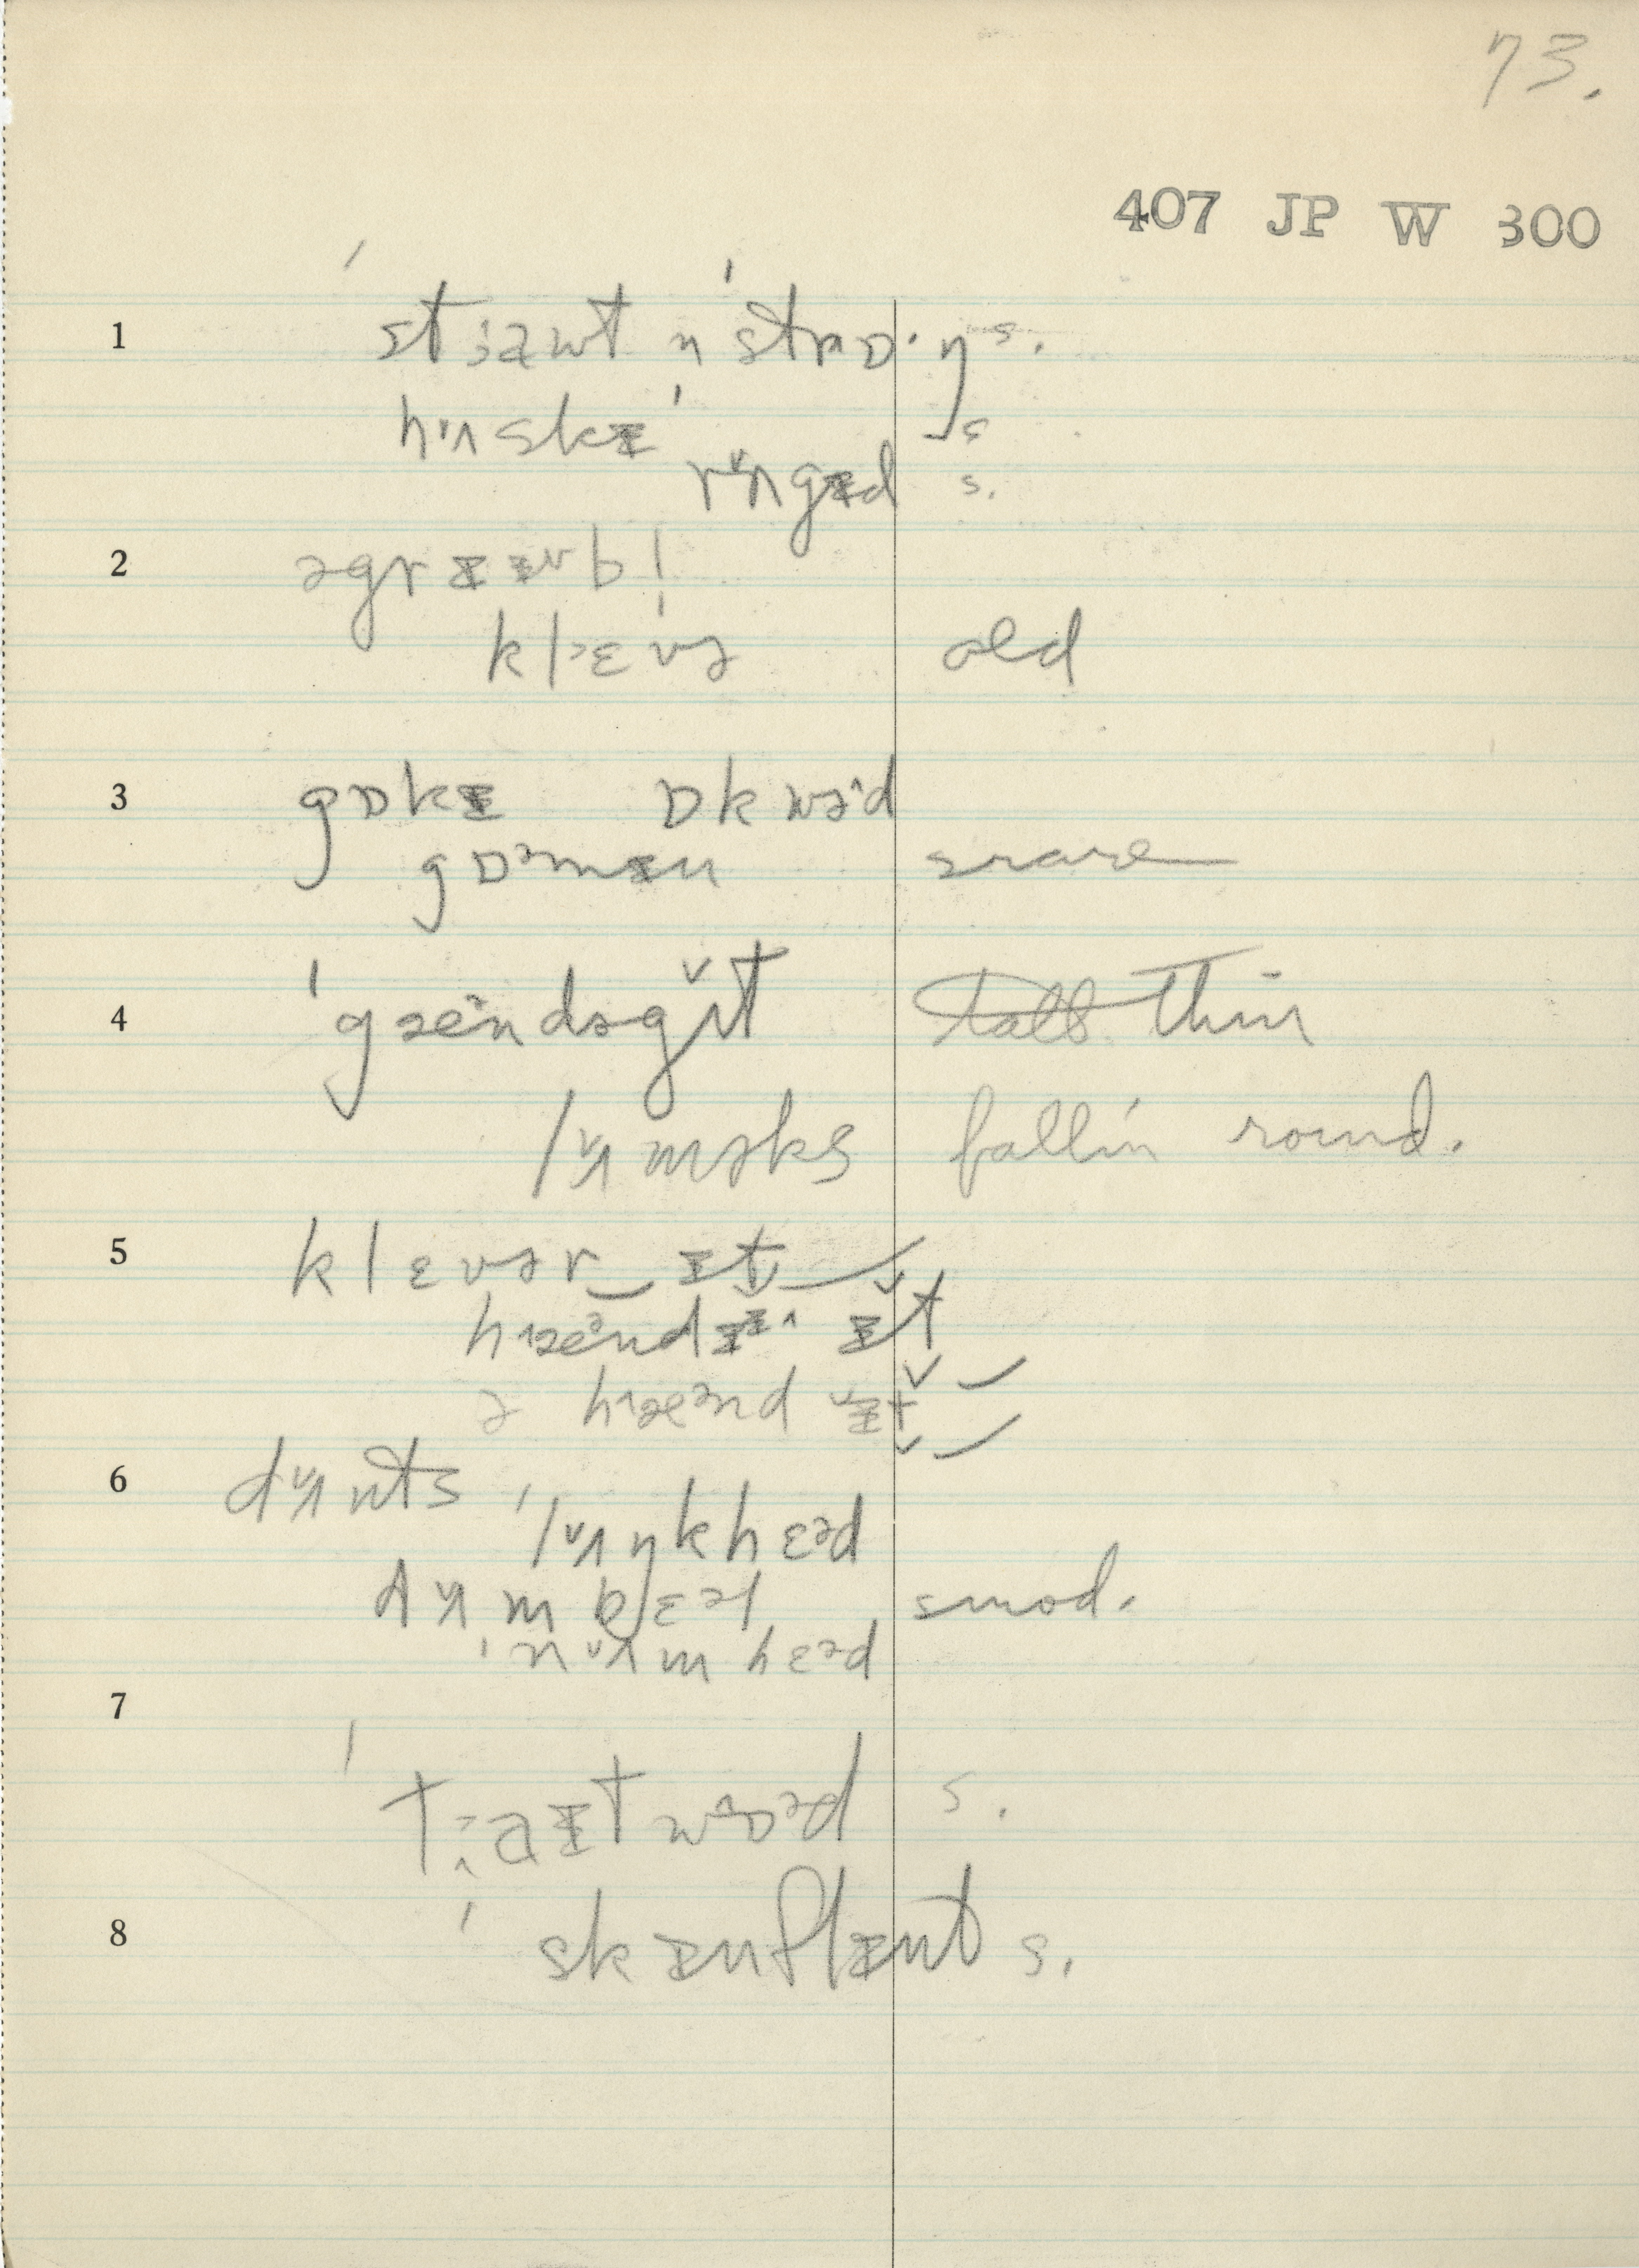 73.
407 JP W 300
1 ˈstɜawt n ˈstrɒ·ŋ s.
hʌskɪ s
rʌgɪd s.
2 əgrɪɪəbl
klɛvə old
3 gɒkɪ ɒkwəd
gɒəmɪn rare
4 ˈgæəndəgʌt tall thin
lʌməks fallin' round.
5 klɛvər ɪt
hæəndɪ ɪt
ə hæənd ɪt
6 dʌnts ˈlʌŋkhɛəd
dʌmbɛəl smod.
ˈnʌmhɛəd
7
ˈtɜaɪtwɒəd s.
8 ˈskɪnflɪnt s.